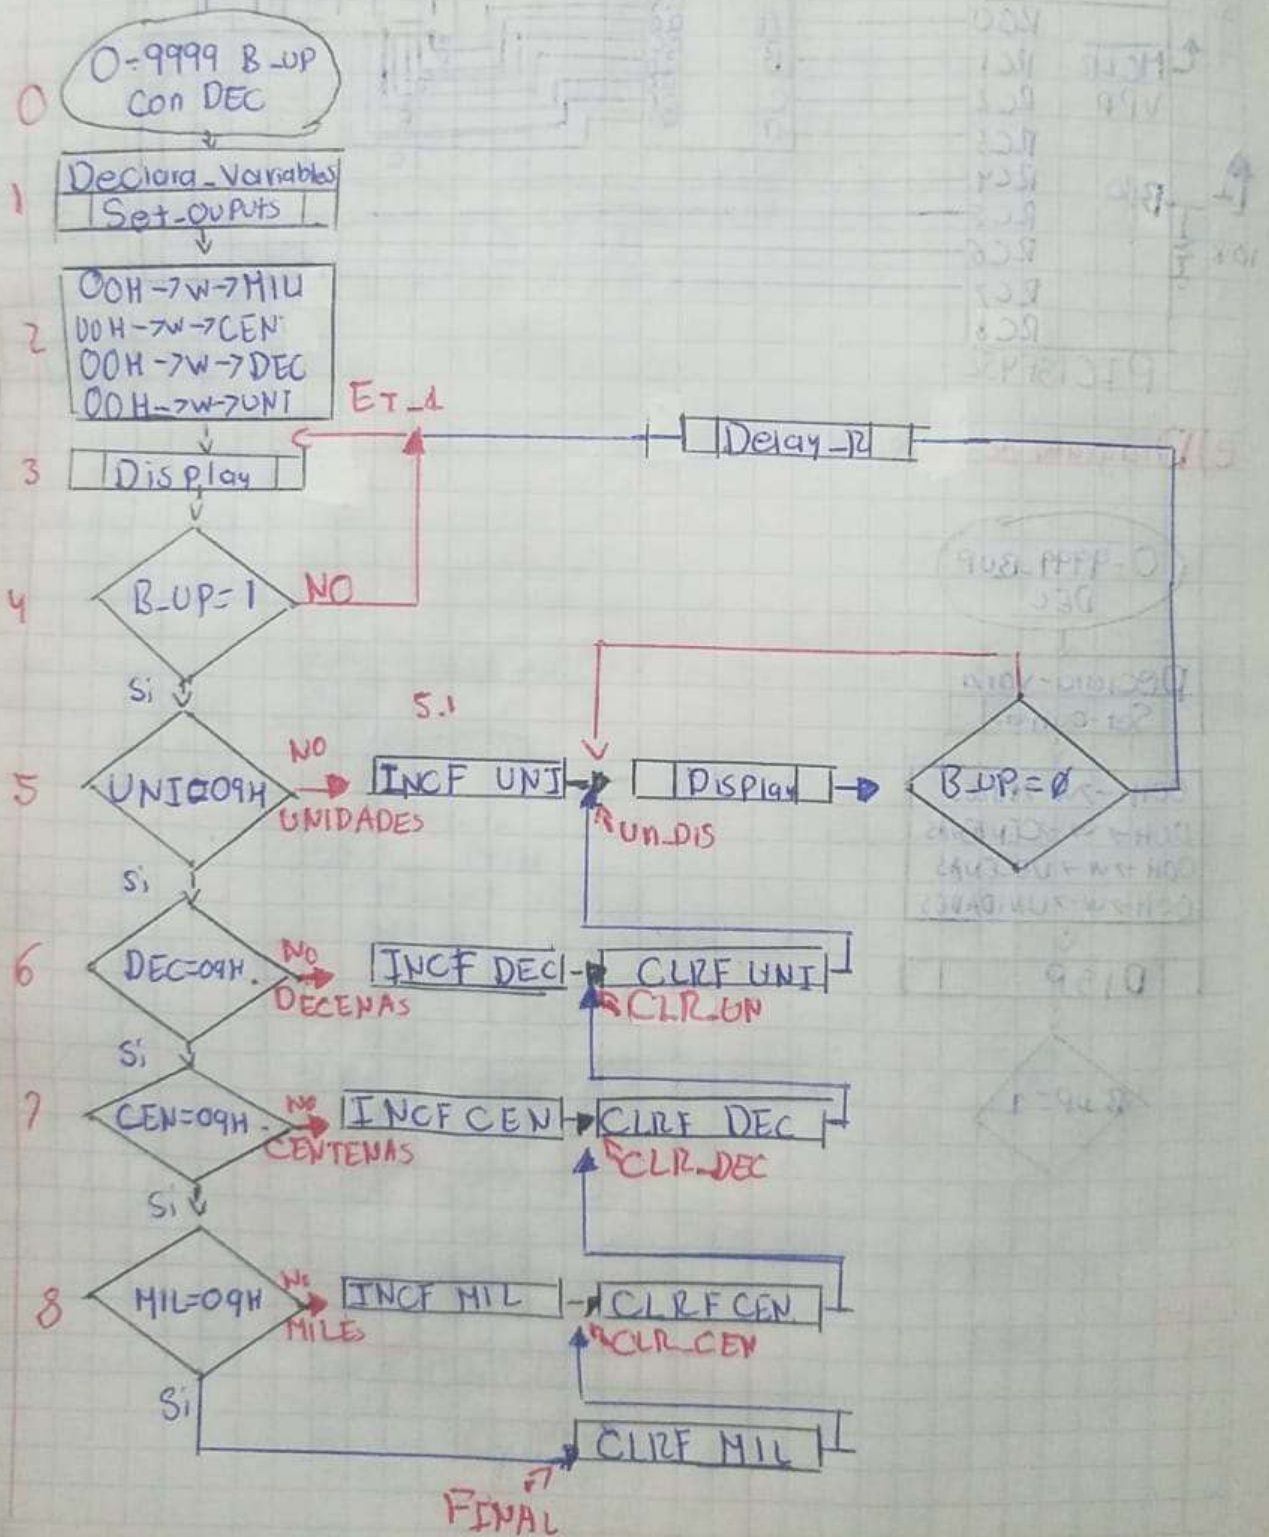 0-9999 B_UP
Con DEC
0
Declara_Variables
Set_OUPUTS
1
00H->W->MIL
00H->W->CEN
00H->W->DEC
00H->W->UNI
2
ET_1
Delay_R
Display
3
B_UP=1
NO
4
Si
5.1
UNI=09H
NO
UNIDADES
INCF UNI
Display
B_UP=0
UN_DIS
5
Si
DEC=09H.
NO
DECENAS
INCF DEC
CLRF UNI
CLR_UN
6
Si
CEN=09H.
NO
CENTENAS
INCF CEN
CLRF DEC
CLR_DEC
7
Si
MIL=09H
NO
MILES
INCF MIL
CLRF CEN
CLR_CEN
8
Si
CLRF MIL
FINAL